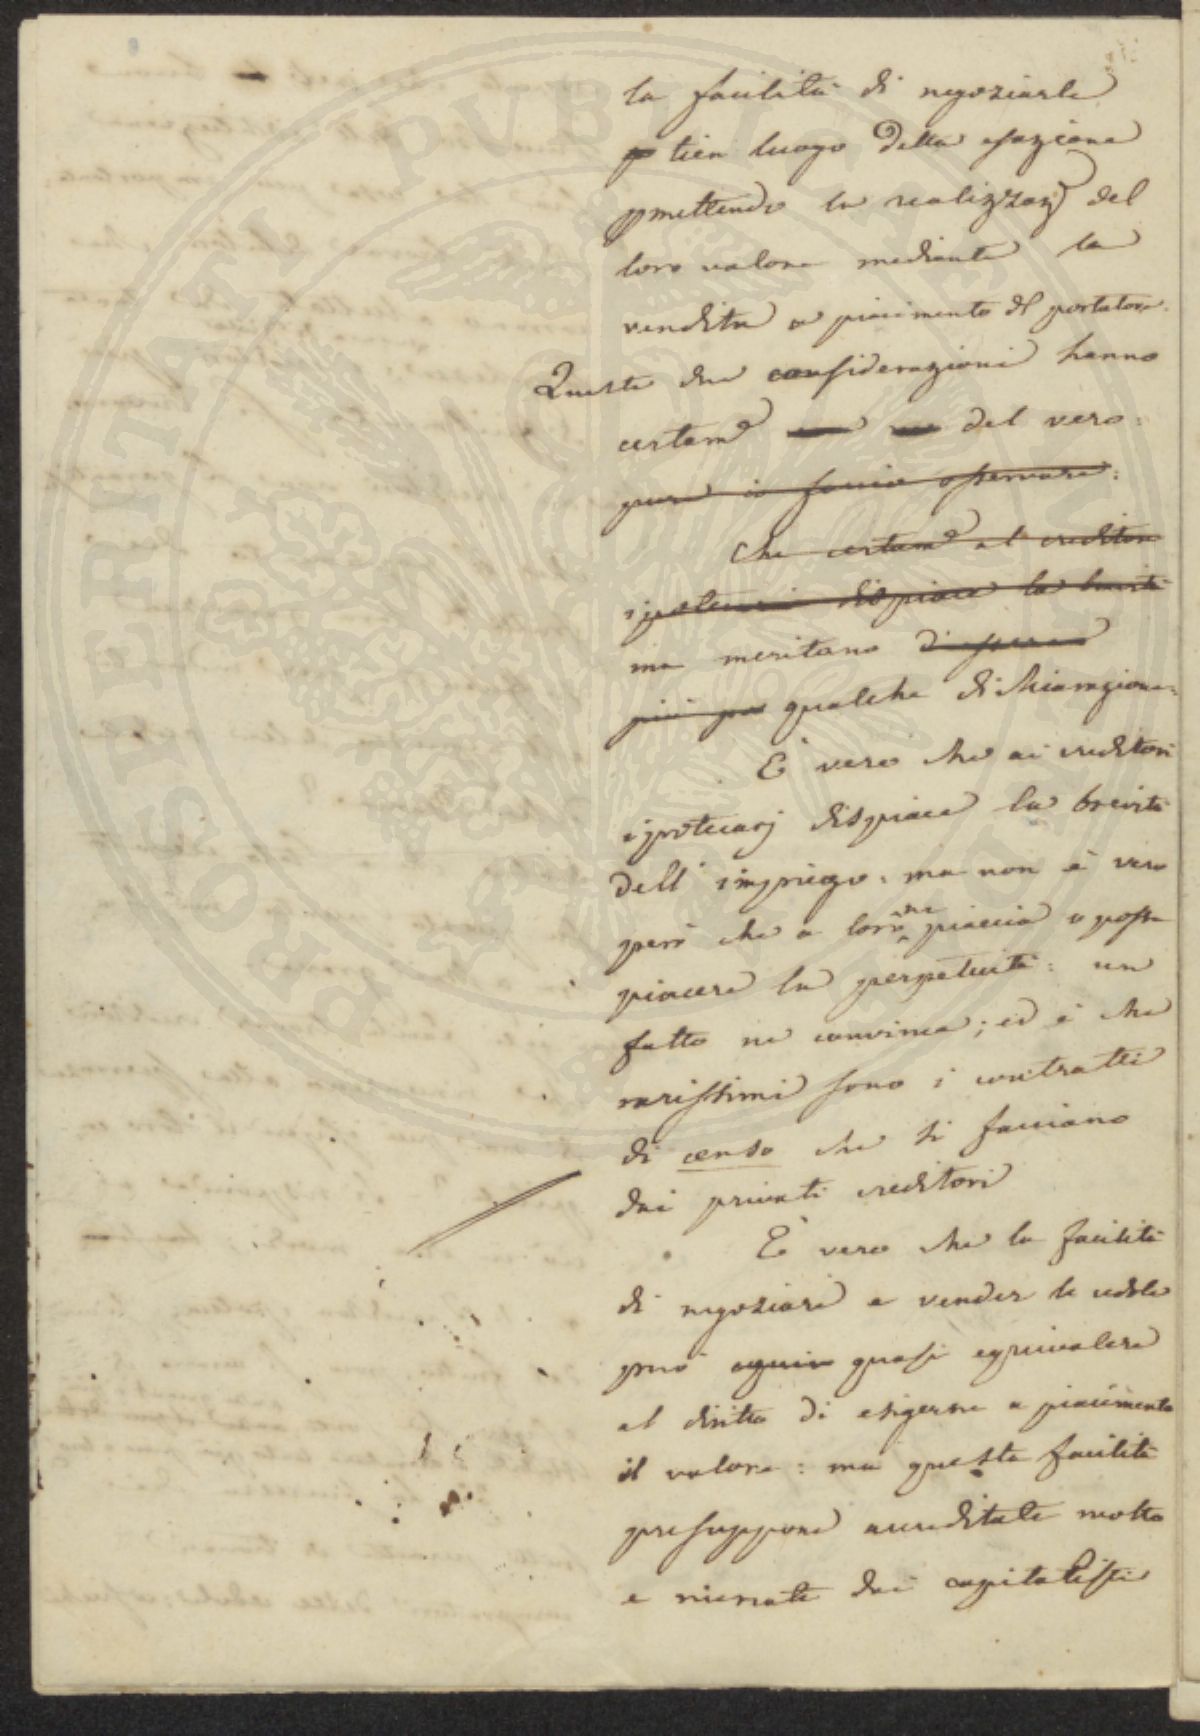 la facilità di negoziarle
tien luogo della esazione
pmettendo la realizzaz.e del
loro valore mediante la
vendita a piacimento del portatore.
Queste due considerazioni hanno
certam.e del vero:
pure io faccio osservare:
Che certam.e al creditore
ipotecario dispiace la brevità
ma meritano di essere
più qualche dichiarazione:
È vero che ai creditori
ipotecarj dispiace la brevità
dell'impiego: ma non è vero
però che a loro ne piaccia o possa
piacere la perpetuità: un
fatto ne convince; ed è che
rarissimi sono i contratti
di censo che si facciano
dai privati creditori
È vero che la facilità
di negoziare e vender le cedole
può quasi equivalere
al diritto di esigerne a piacimento
il valore: ma questa facilità
presuppone accreditate molto
e ricercate dai capitalisti
PROSPERITATI PUBLICAE